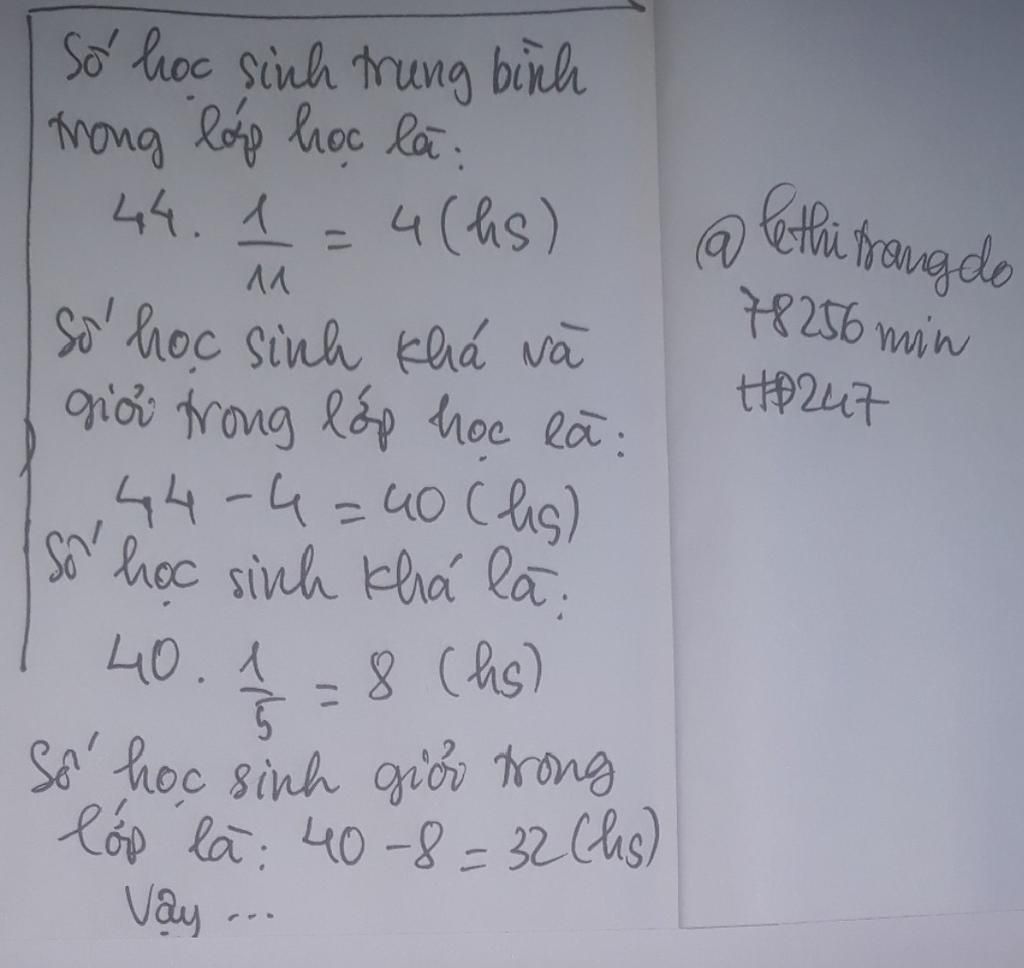 Số học sinh trung bình
trong lớp học là:
44. 1/11 = 4 (hs)
Số học sinh khá và
giỏi trong lớp học là:
44 - 4 = 40 (hs)
Số học sinh khá là:
40. 1/5 = 8 (hs)
Số học sinh giỏi trong
lớp là: 40 - 8 = 32 (hs)
Vậy ...
@ lethitrangdo
78256 min